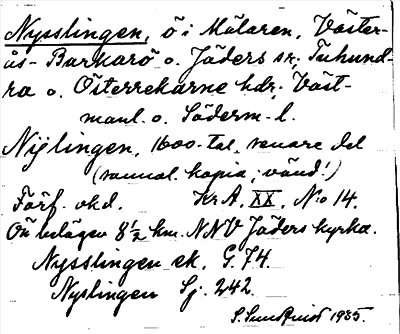 Nysslingen, ö i Mälaren, Väster-
ås-Barkarö o. Jäders sn; Tuhund-
ra o. Österrekarne hdr; Väst-
manl. o. Söderm. l.
Nijlingen, 1600-tal, senare del
(samml. kopia; vänd!)
Förf. okd. Kr.A. XX, No 14.
Ön belägen 8 1/2 km. NNV Jäders kyrka.
Nysslingen ek. G. 74.
Nyslingen Sj. 242.
S. Sundkvist 1935.